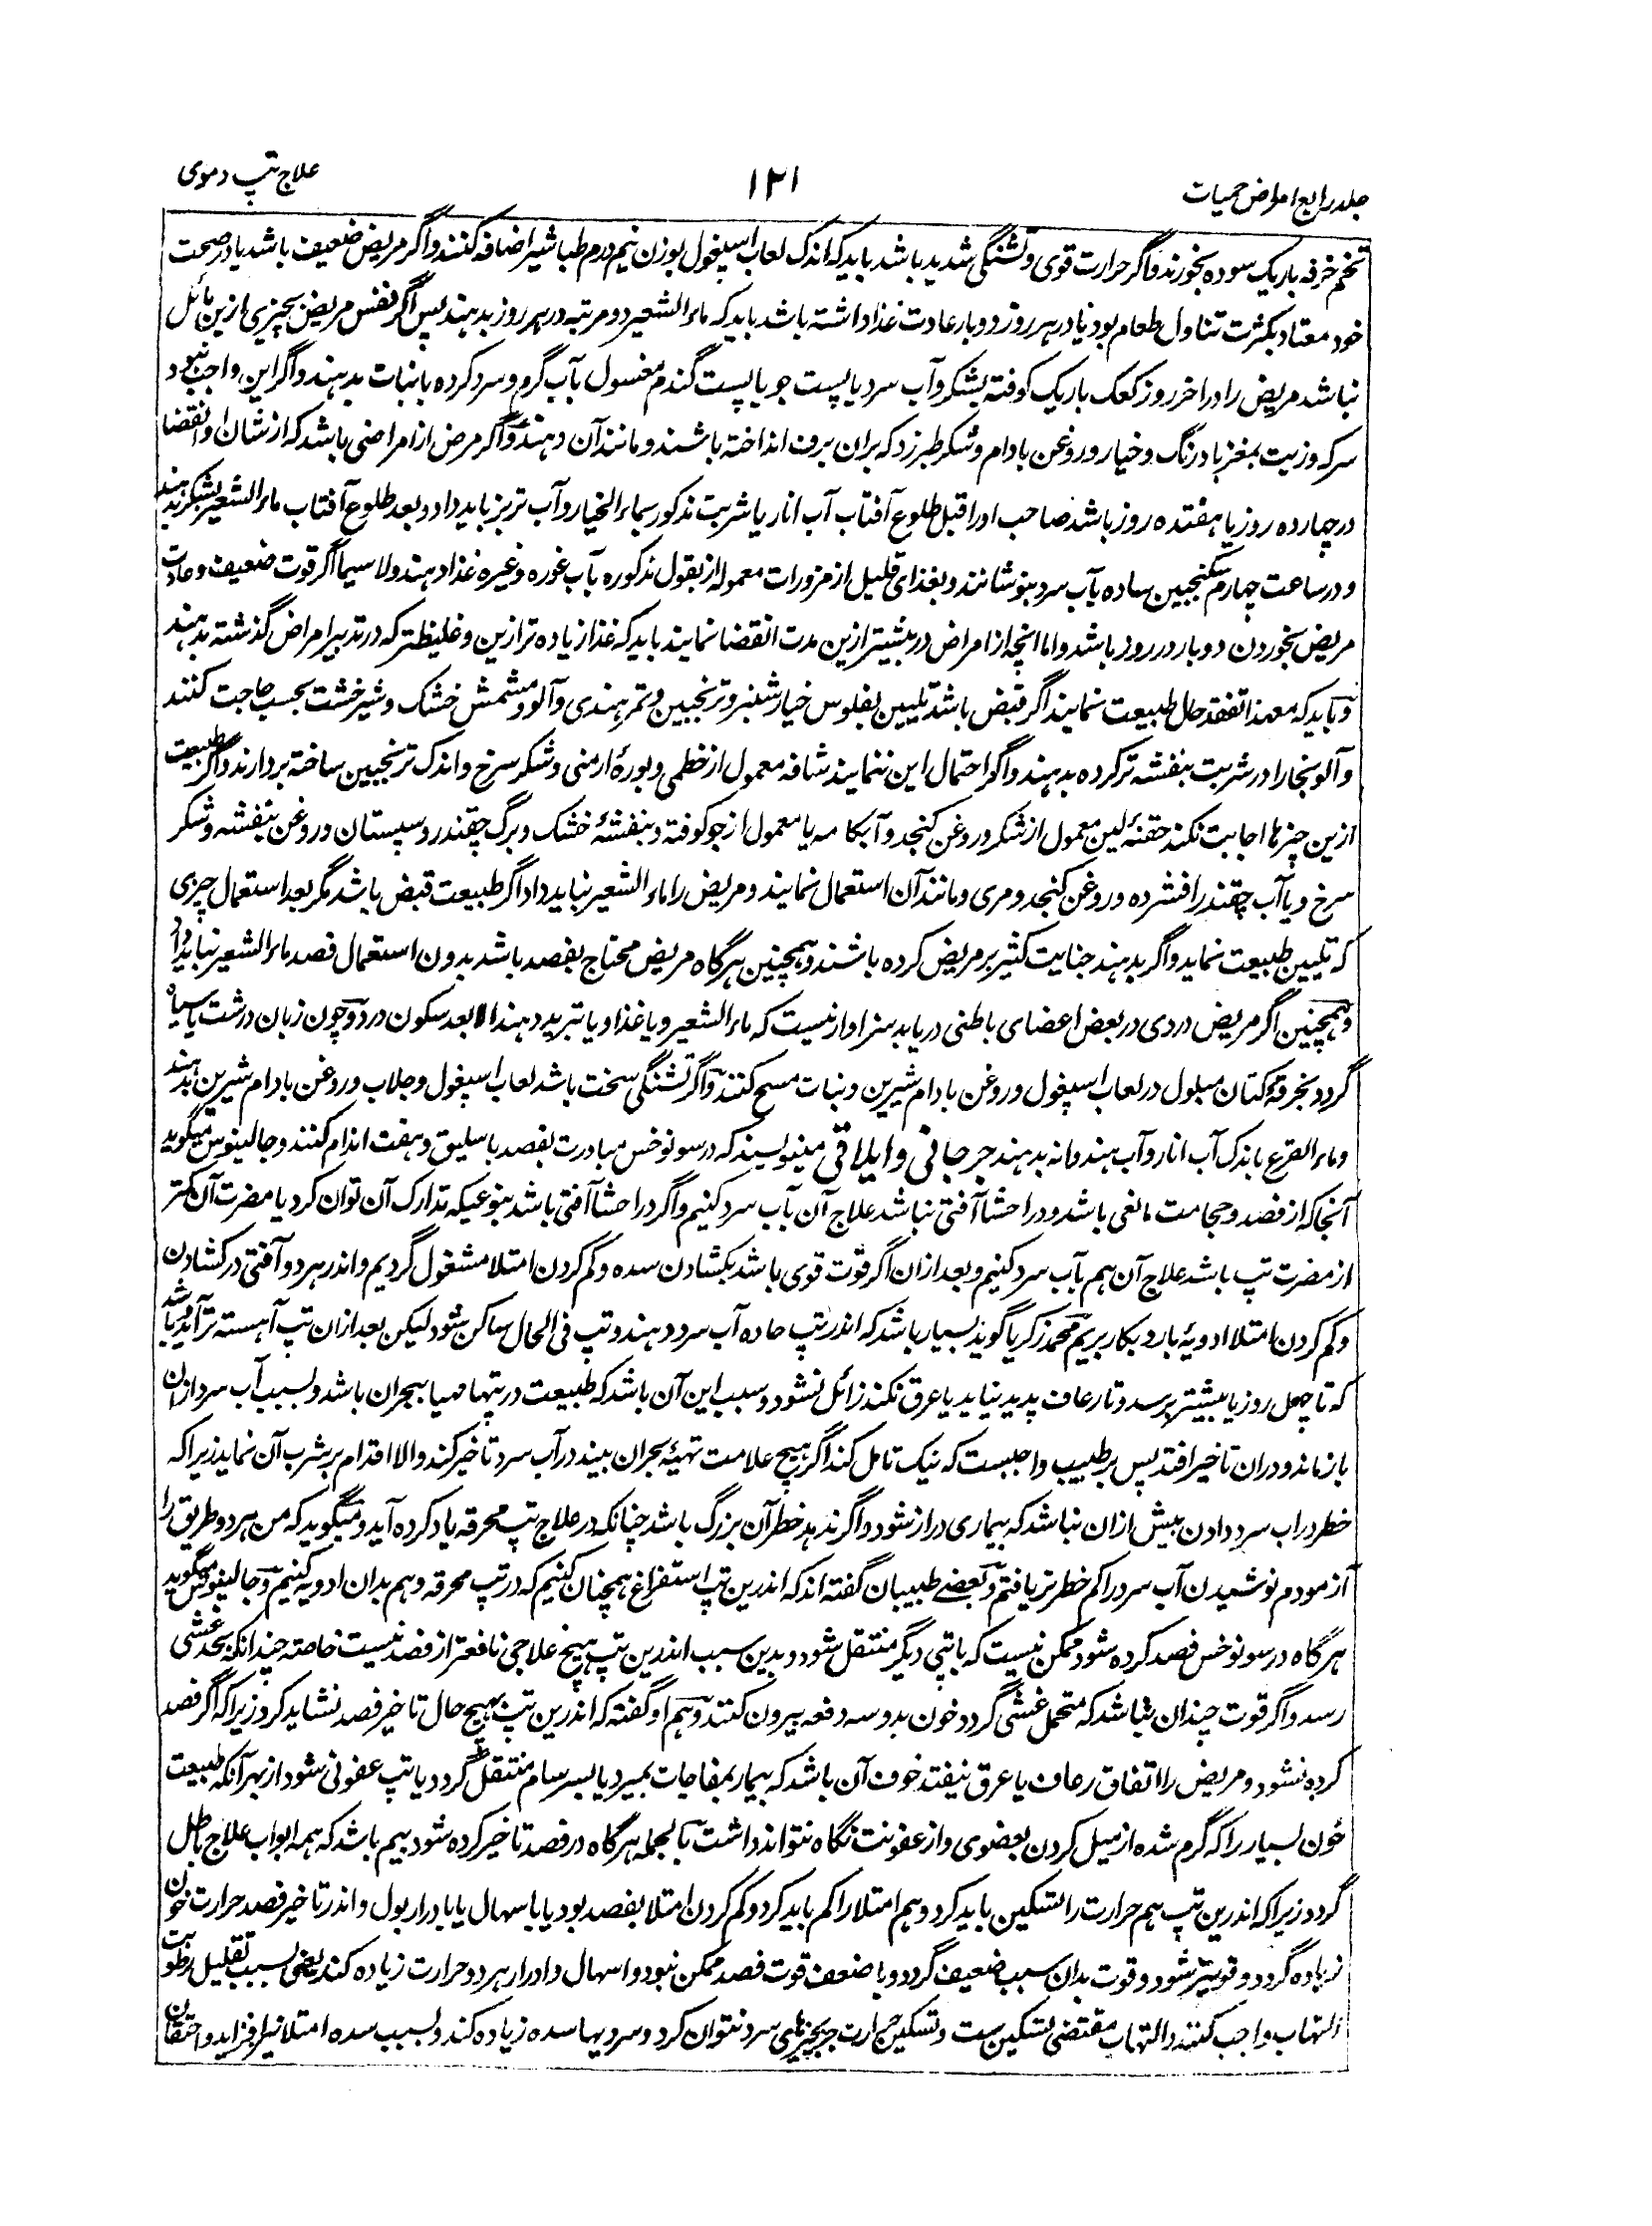 جلد رابع امراض حمیات
۱۲۱
علاج تپ دموی
تخم خرفه باریک سوده بخورند و اگر حرارت قوی و تشنگی شدید باشد باید که اندک لعاب اسپغول بوزن نیم درم طباشیر اضافه کنند و اگر مریض ضعیف باشد یا در صحت
خود معتاد بکثرت تناول طعام بود یا در هر روز دوبار عادت غذا داشته باشد باید که ماء الشعیر دو مرتبه در هر روز بدهند پس اگر نفس مریض بچیزی ازین مائل
نباشد مریض را در اخر روز کعک باریک کوفته بشکر و آب سرد یا پست جو یا پست گندم مغسول بآب گرم و سرد کرده با نبات بدهند و اگر این واجب نبود
سرکه و زیت بمغز بادرنگ و خیار و روغن بادام و شکر طبرزد که بران برف انداخته باشند و مانند آن دهند و اگر مرض از امراضی باشد که از شان او انقضا
در چهارده روز یا هفتده روز باشد صاحب او را قبل طلوع آفتاب آب انار یا شربت مذکور بماء الخیار و آب تربز باید داد و بعد طلوع آفتاب ماء الشعیر بشکر بدهند
و در ساعت چهارم سکنجبین ساده بآب سرد بنوشانند و بغذای قلیل از مزورات معموله از بقول مذکوره بآب غوره و غیره غذا دهند ولا سیما اگر قوت ضعیف و عادت
مریض بخوردن دوبار در روز باشد و اما انچه از امراض در بیشتر ازین مدت انقضا نمایند باید که غذا زیاده تر ازین و غلیظتر که در تدبیر امراض گذشته بدهند
و باید که معهذا تفقد حال طبیعت نمایند اگر قبض باشد تلیین بفلوس خیارشنبر و ترنجبین و تمر هندی و آلو و مشمش خشک و شیرخشت بحسب حاجت کنند
و آلو بخارا در شربت بنفشه تر کرده بدهند و اگر احتمال این ننمایند شافه معمول از خطمی و بورهٔ ارمنی و شکر سرخ و اندک ترنجبین ساخته بردارند و اگر طبیعت
ازین چیزها اجابت نکند حقنهٔ لین معمول از شکر و روغن کنجد و آبکامه یا معمول از جو کوفته و بنفشهٔ خشک و برگ چقندر و سپستان و روغن بنفشه و شکر
سرخ و یا آب چقندر افشرده و روغن کنجد و مری و مانند آن استعمال نمایند و مریض را ماء الشعیر نباید داد اگر طبیعت قبض باشد مگر بعد استعمال چیزی
که تلیین طبیعت نماید و اگر بدهند جنایت کثیر بر مریض کرده باشند و همچنین هرگاه مریض محتاج بفصد باشد بدون استعمال فصد ماء الشعیر نباید داد
و همچنین اگر مریض دردی در بعض اعضای باطنی دریابد سزاوار نیست که ماء الشعیر و یا غذا و یا تبرید دهند الا بعد سکون درد و چون زبان درشت یا سیاه
گردد بخرقهٔ کتان مبلول در لعاب اسپغول و روغن بادام شیرین و نبات مسح کنند و اگر تشنگی سخت باشد لعاب اسپغول و جلاب و روغن بادام شیرین بدهند
و ماء القرع باندک آب انار و آب هندوانه بدهند جرجانی و ایلاقی مینویسند که در سونوخس مبادرت بفصد باسلیق و هفت اندام کنند و جالینوس میگوید
آنجا که از فصد و حجامت مانعی باشد و در احشا آفتی نباشد علاج آن بآب سرد کنیم و اگر در احشا آفتی باشد بنوعیکه تدارک آن توان کرد یا مضرت آن کمتر
از مضرت تپ باشد علاج آن هم بآب سرد کنیم و بعد ازان اگر قوت قوی باشد بکشادن سده و کم کردن امتلا مشغول گردیم و اندر هر دو آفتی در کشادن
و کم کردن امتلا ادویهٔ بارد بکار بریم محمد زکریا گوید بسیار باشد که اندر تپ حاده آب سرد دهند و تپ فی الحال ساکن شود لیکن بعد ازان تپ آهسته تر آید باشد
که تا چهل روز یا بیشتر برسد و تا رعاف پدید نیاید یا عرق نکند زائل نشود و سبب این آن باشد که طبیعت در تپها مهیا ببحران باشد و بسبب آب سرد ازان
بازماند و دران تاخیر افتد پس بر طبیب واجبست که نیک تامل کند اگر هیچ علامت تهیهٔ بحران بیند در آب سرد تاخیر کند والا اقدام بر شرب آن نماید زیرا که
خطر در اب سرد دادن بیش ازان نباشد که بیماری دراز شود و اگر ندهد خطر آن بزرگ باشد چنانکه در علاج تپ محرقه یاد کرده آید و میگوید که من هر دو طریق را
آزمودم نوشیدن آب سرد را کم خطر تر یافتم و بعضے طبیبان گفته اند که اندرین تپ استفراغ همچنان کنیم که در تپ محرقه و هم بدان ادویه کنیم و جالینوس میگوید
هرگاه در سونوخس فصد کرده شود ممکن نیست که با تپی دیگر منتقل شود و بدین سبب اندرین تپ هیچ علاجی نافعتر از فصد نیست خاصة چندانکه بحد غشی
رسد و اگر قوت چندان نباشد که متحمل غشی گردد خون بدو سه دفعه بیرون کنند و هم او گفته که اندرین تپ بهیچ حال تاخیر فصد نشاید کرد زیرا که اگر فصد
کرده نشود و مریض را اتفاق رعاف یا عرق نیفتد خوف آن باشد که بیمار بمفاجات بمیرد یا بسرسام منتقل گردد یا تپ عفونی شود از بهر آنکه طبیعت
خون بسیار را که گرم شده از میل کردن بعضوی و از عفونت نگاه نتواند داشت بالجمله هرگاه در فصد تاخیر کرده شود بیم باشد که همه ابواب علاج باطل
گردد زیرا که اندرین تپ هم حرارت را تسکین باید کرد و هم امتلا را کم باید کرد و کم کردن امتلا بفصد بود یا باسهال یا بادرار بول و اندر تاخیر فصد حرارت خون
زیاده گردد و قویتر شود و قوت بدان سبب ضعیف گردد و با ضعف قوت فصد ممکن نبود و اسهال و ادرار هر دو حرارت زیاده کند یعنی بسبب تقلیل رطوبت
التهاب واجب کنند و التهاب مقتضی تسکین ست و تسکین حرارت جز بچیزهای سرد نتوان کرد و سردیها سده زیاده کند و بسبب سده امتلا نیز افزاید و احتقان